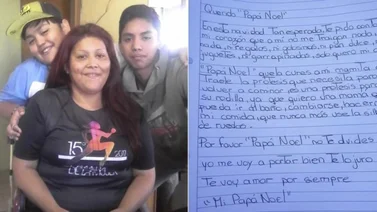 15
Querido "Papá Noel"
En esta navidad Tan esperada, te pido con to
mi corazón que a mi no me traigas nada
nada, ni regalos, ni golosinas, ni pan dulce, ni
juguetes, ni garrapiñadas, solo quiero
"Papá Noel" que la cures a mi mamita
Traele la protesis que necesita para
volver a caminar es una protesis para
su rodilla, ya que quiero una mamá q
pueda ir al baño, cambiarse, hacer
mi comida, que nunca mas use la sill
de ruedas.
Por favor "Papá Noel" no Te olvides
yo me voy a portar bien Te lo juro.
Te voy amar por siempre
"Mi Papá Noel"